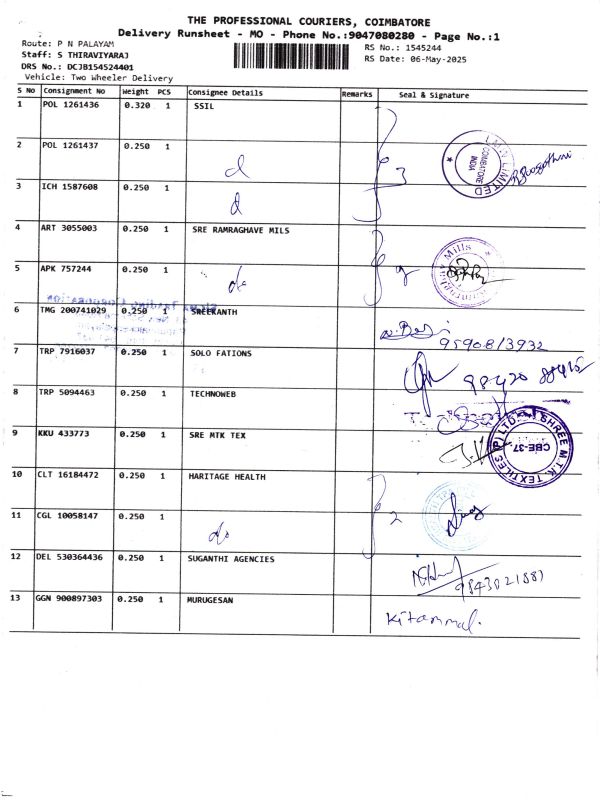 THE PROFESSIONAL COURIERS, COIMBATORE
Delivery Runsheet - MO - Phone No.:9047080280 - Page No.:1
Route: P N PALAYAM
RS No.: 1545244
Staff: S THIRAVIYARAJ
RS Date: 06-May-2025
DRS No.: DCJB154524401
Vehicle: Two Wheeler Delivery
S No Consignment No Weight PCS Consignee Details Remarks Seal & Signature
1 POL 1261436 0.320 1 SSIL
2 POL 1261437 0.250 1 d
3 ICH 1587608 0.250 1 d
3
LIMITED
COIMBATORE
INDIA
4 ART 3055003 0.250 1 SRE RAMRAGHAVE MILS
5 APK 757244 0.250 1 do
Mills
6 TMG 200741029 0.250 1 SREEKANTH
9590813932
7 TRP 7916037 0.250 1 SOLO FATIONS
98420 88415
8 TRP 5094463 0.250 1 TECHNOWEB
9 KKU 433773 0.250 1 SRE MTK TEX
SHREE M.T.K. TEXTILES (P) LTD.
CBE-37
10 CLT 16184472 0.250 1 HARITAGE HEALTH
11 CGL 10058147 0.250 1 do
2
12 DEL 530364436 0.250 1 SUGANTHI AGENCIES
9843021881
13 GGN 900897303 0.250 1 MURUGESAN
Kitammal.